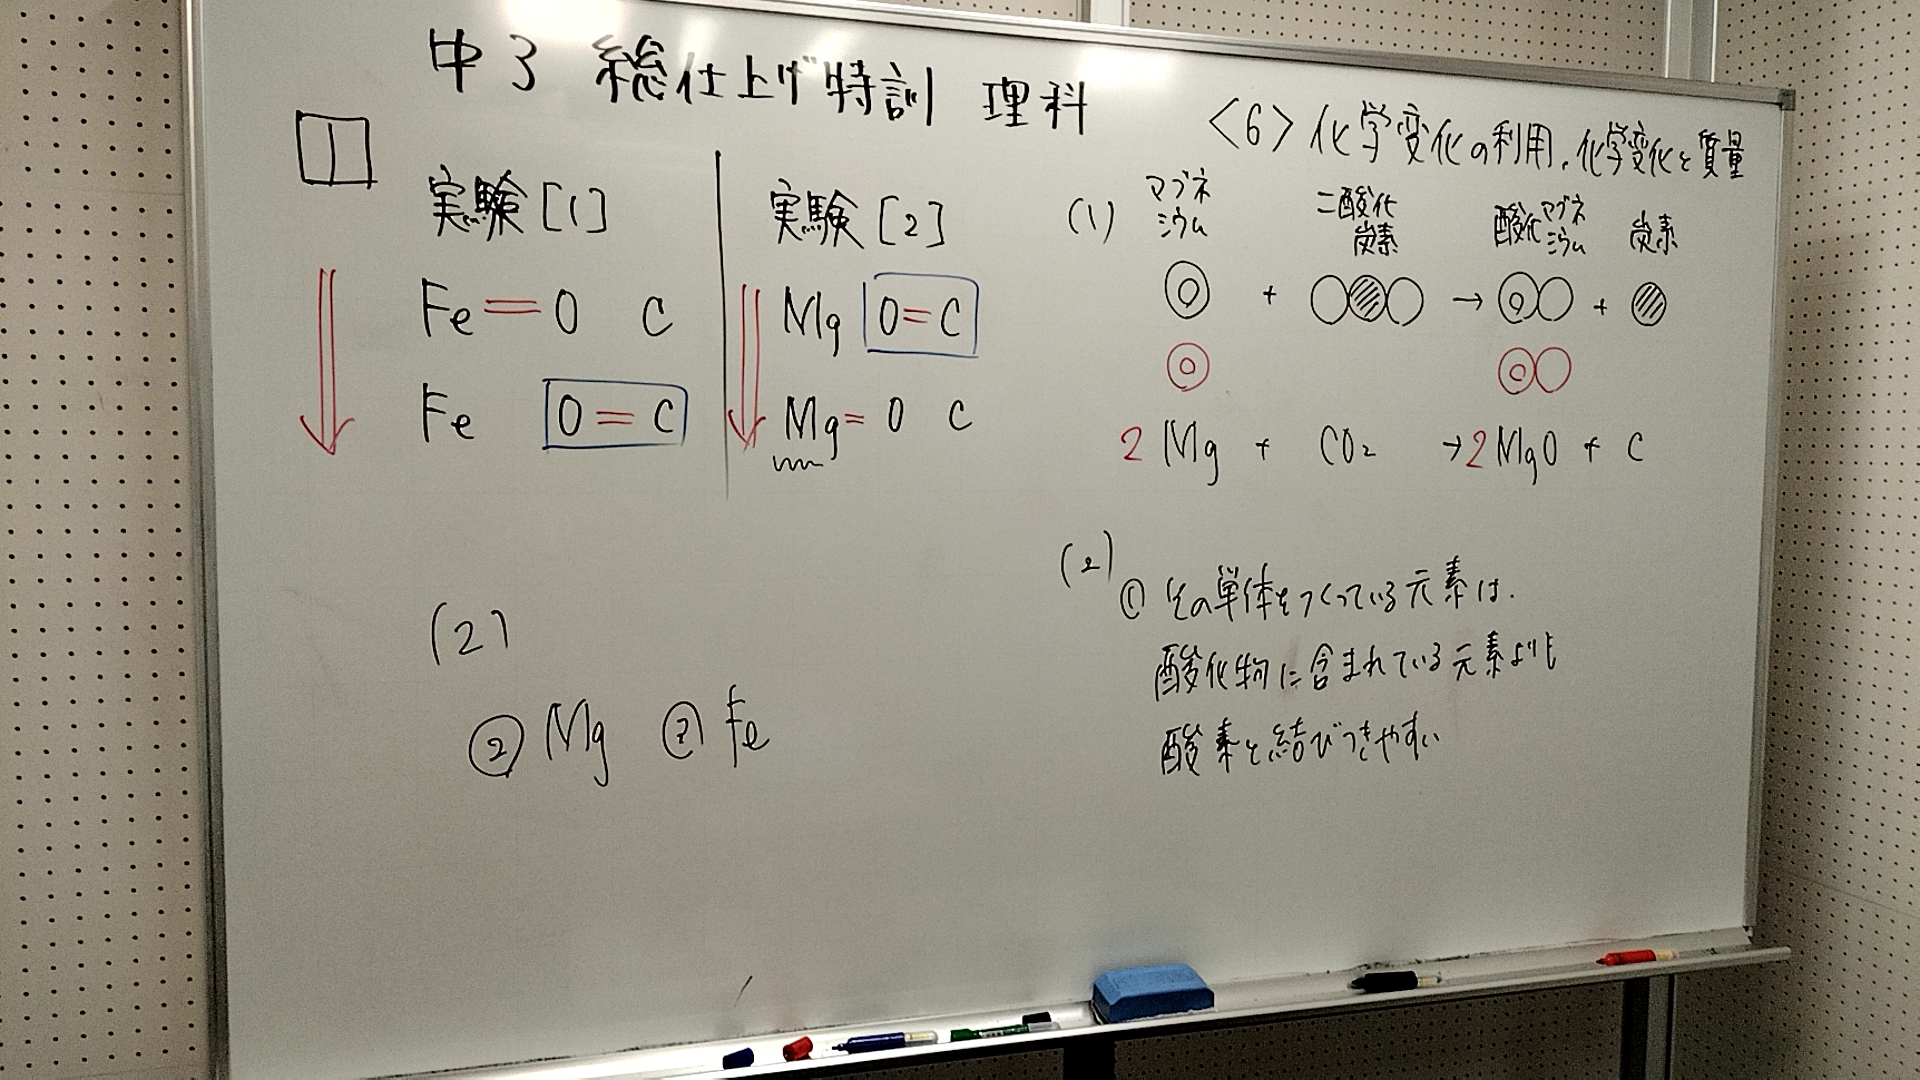 中3 総仕上げ特訓 理科
<6> 化学変化の利用, 化学変化と質量
1
実験[1]
Fe=O C
Fe O=C
実験[2]
Mg O=C
Mg=O C
(2)
② Mg ② Fe
(1) マグネシウム 二酸化炭素 酸化マグネシウム 炭素
+ → +
2Mg + CO₂ →2MgO + C
(2)
① その単体をつくっている元素は,
酸化物に含まれている元素よりも
酸素と結びつきやすい